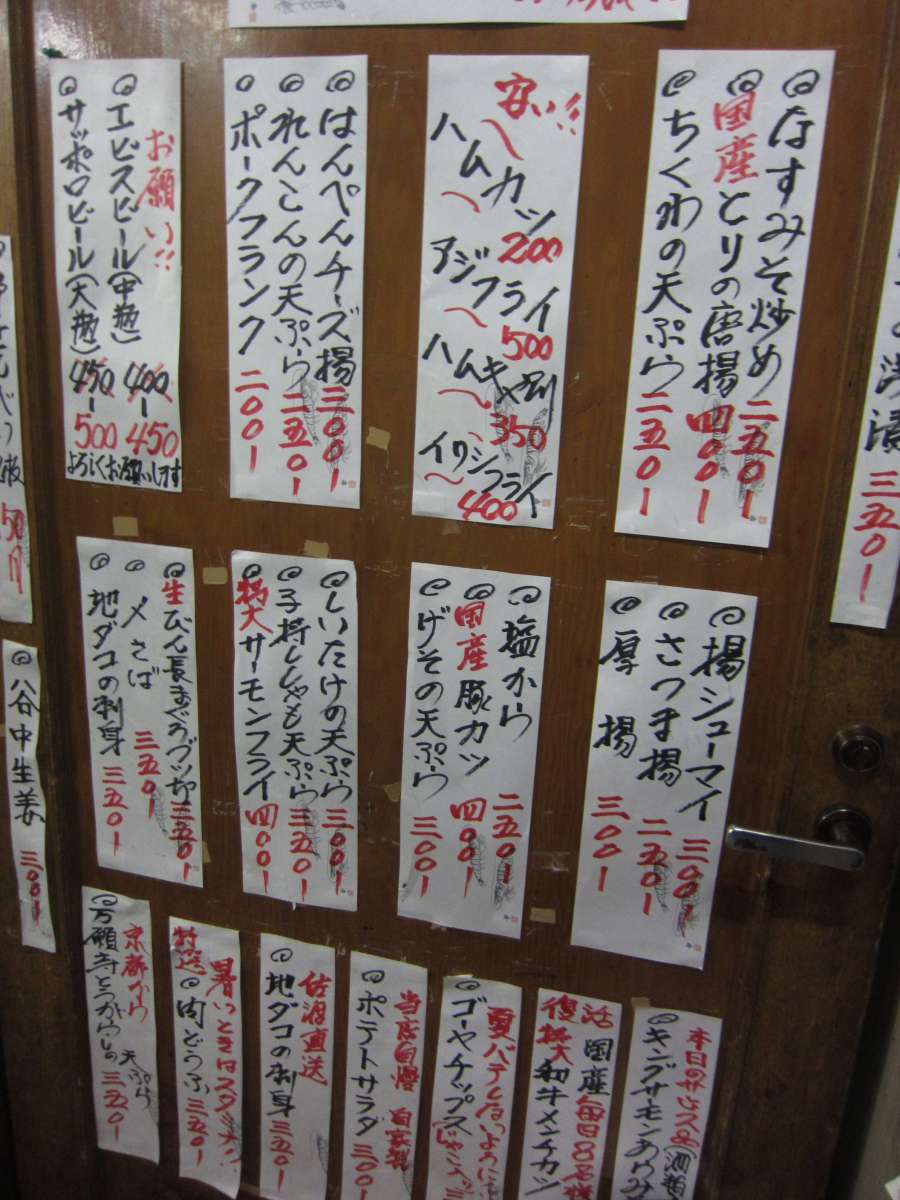 なすみそ炒め 二五〇ー
国産とりの唐揚 四〇〇ー
ちくわの天ぷら 二五〇ー
安い!!
ハムカツ 200
アジフライ 500
ハムキャ別 350
イワシフライ 400
はんぺんチーズ揚 三〇〇ー
れんこんの天ぷら 二五〇ー
ポークフランク 二〇〇ー
お願い!!
エビスビール(中瓶) 400ー 450
サッポロビール(大瓶) 450ー 500
よろしくお願いします
三五〇ー
揚シューマイ 三〇〇ー
さつま揚 二五〇ー
厚揚 三〇〇ー
塩から 二五〇ー
国産豚カツ 四〇〇ー
げその天ぷら 三〇〇ー
しいたけの天ぷら 三〇〇ー
子持ししゃも天ぷら 三五〇ー
特大サーモンフライ 四〇〇ー
生びん長まぐろブツ切 三五〇ー
〆さば 三五〇ー
地ダコの刺身 三五〇ー
谷中生姜 三〇〇ー
本日のサービス品
キングサモン
活 国産毎日8名様
復極大和牛メンチカツ
夏バテしないように
ゴーヤチップス
当店自慢 自家製
ポテトサラダ 三〇〇ー
佐渡直送
地ダコの刺身 三五〇ー
暑いときはスタミナ!!
特選 肉どうふ 三五〇ー
京都から
万願寺とうがらしの天ぷら 三五〇ー